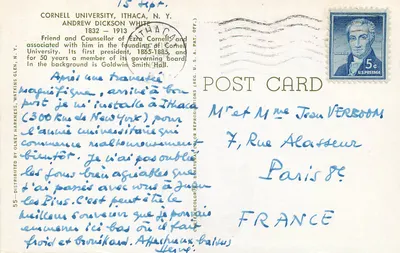 15 Sept.
CORNELL UNIVERSITY, ITHACA, N. Y.
ANDREW DICKSON WHITE
1832 – 1918
Friend and Counsellor of Ezra Cornell and
associated with him in the founding of Cornell
University. Its first president, 1865-1885, and
for 50 years a member of its governing board.
In the background is Goldwin Smith Hall.
Après une traversée
magnifique, arrivé à bon
port je m'installe à Ithaca
(300 km de New York) pour
l'année universitaire qui
commence malheureusement
bientôt. Je n'ai pas oublié
les jours bien agréables que
j'ai passés avec vous à Juan
les Pins. C'est peut être le
meilleur souvenir que je pouvais
emmener ici bas où il fait
froid et brouillard. Affectueux baisers
Hervé.
ITHACA
5c
U.S. POSTAGE
POST CARD
Mr et Mme Jean VERDOOM
7, Rue Alasseur
Paris
FRANCE